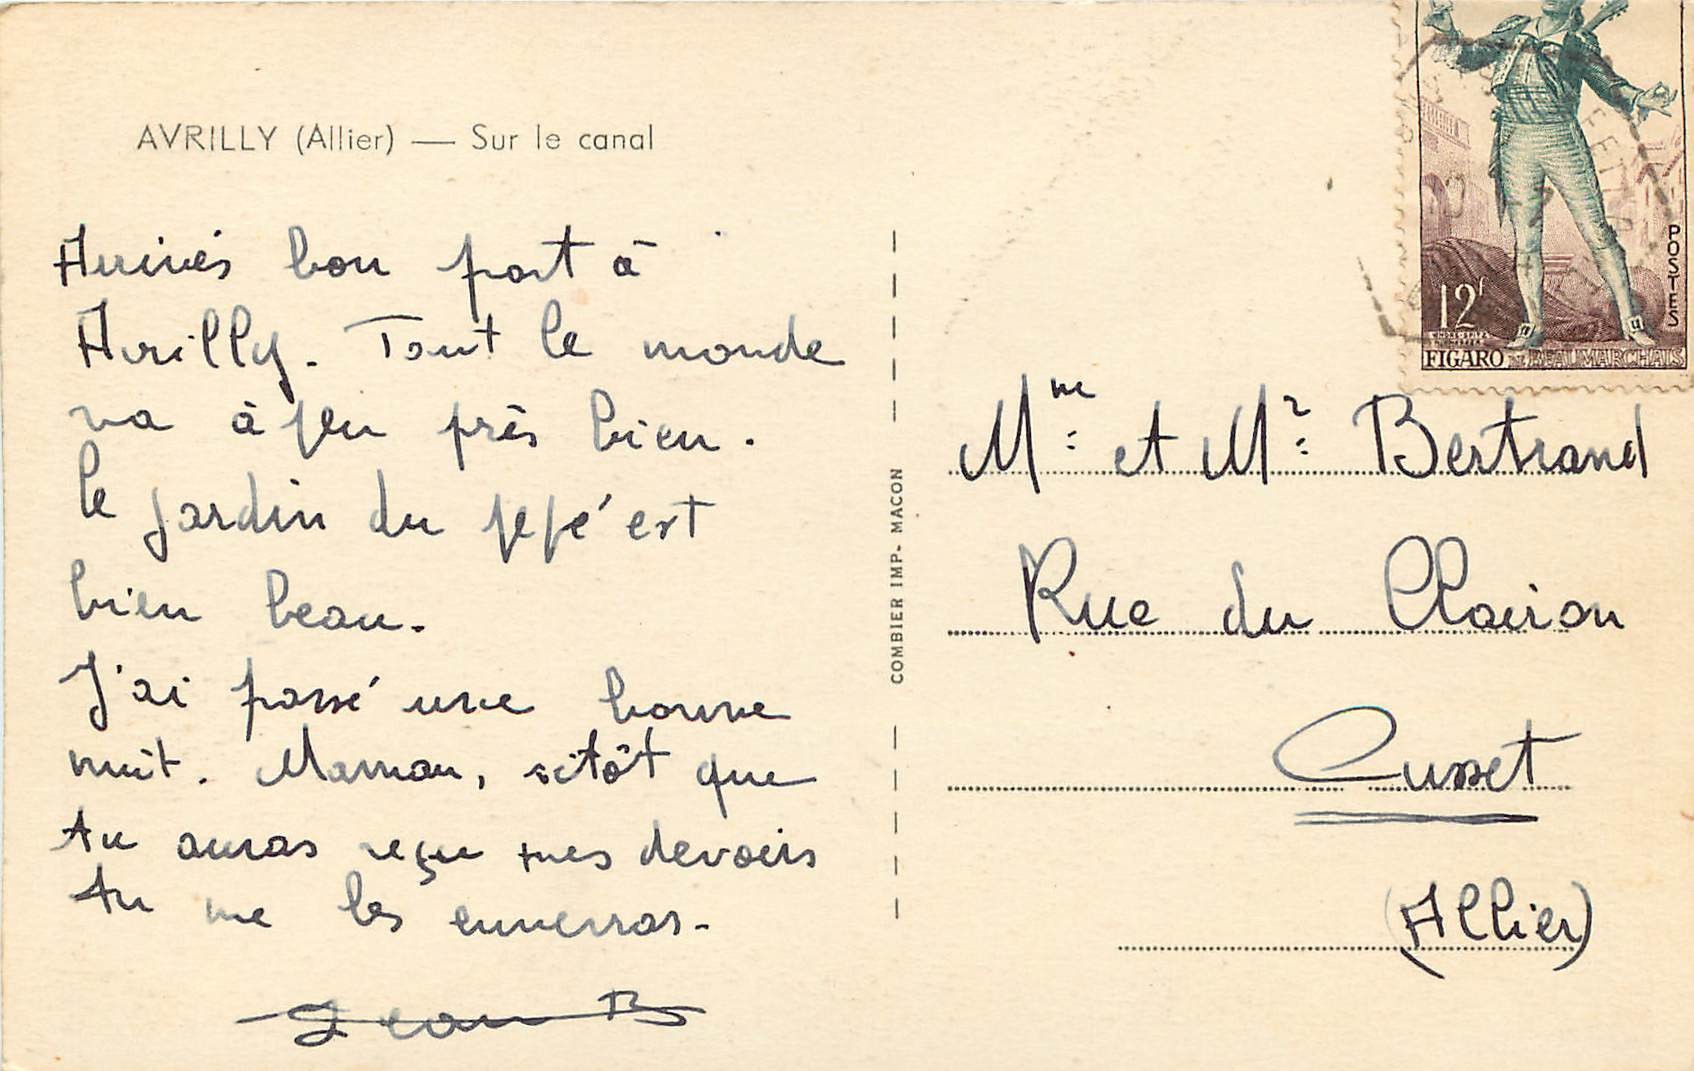 AVRILLY (Allier) — Sur le canal
Arrivés bon port à
Avrilly. Tout le monde
va à peu près bien.
le jardin du pépé est
bien beau.
J'ai passé une bonne
nuit. Maman, sitôt que
tu auras reçu mes devoirs
tu me les enverras.
Jean B
COMBIER IMP. MACON
12f
POSTES
FIGARO DE BEAUMARCHAIS
Mme et Mr Bertrand
Rue du Clairon
Cusset
(Allier)